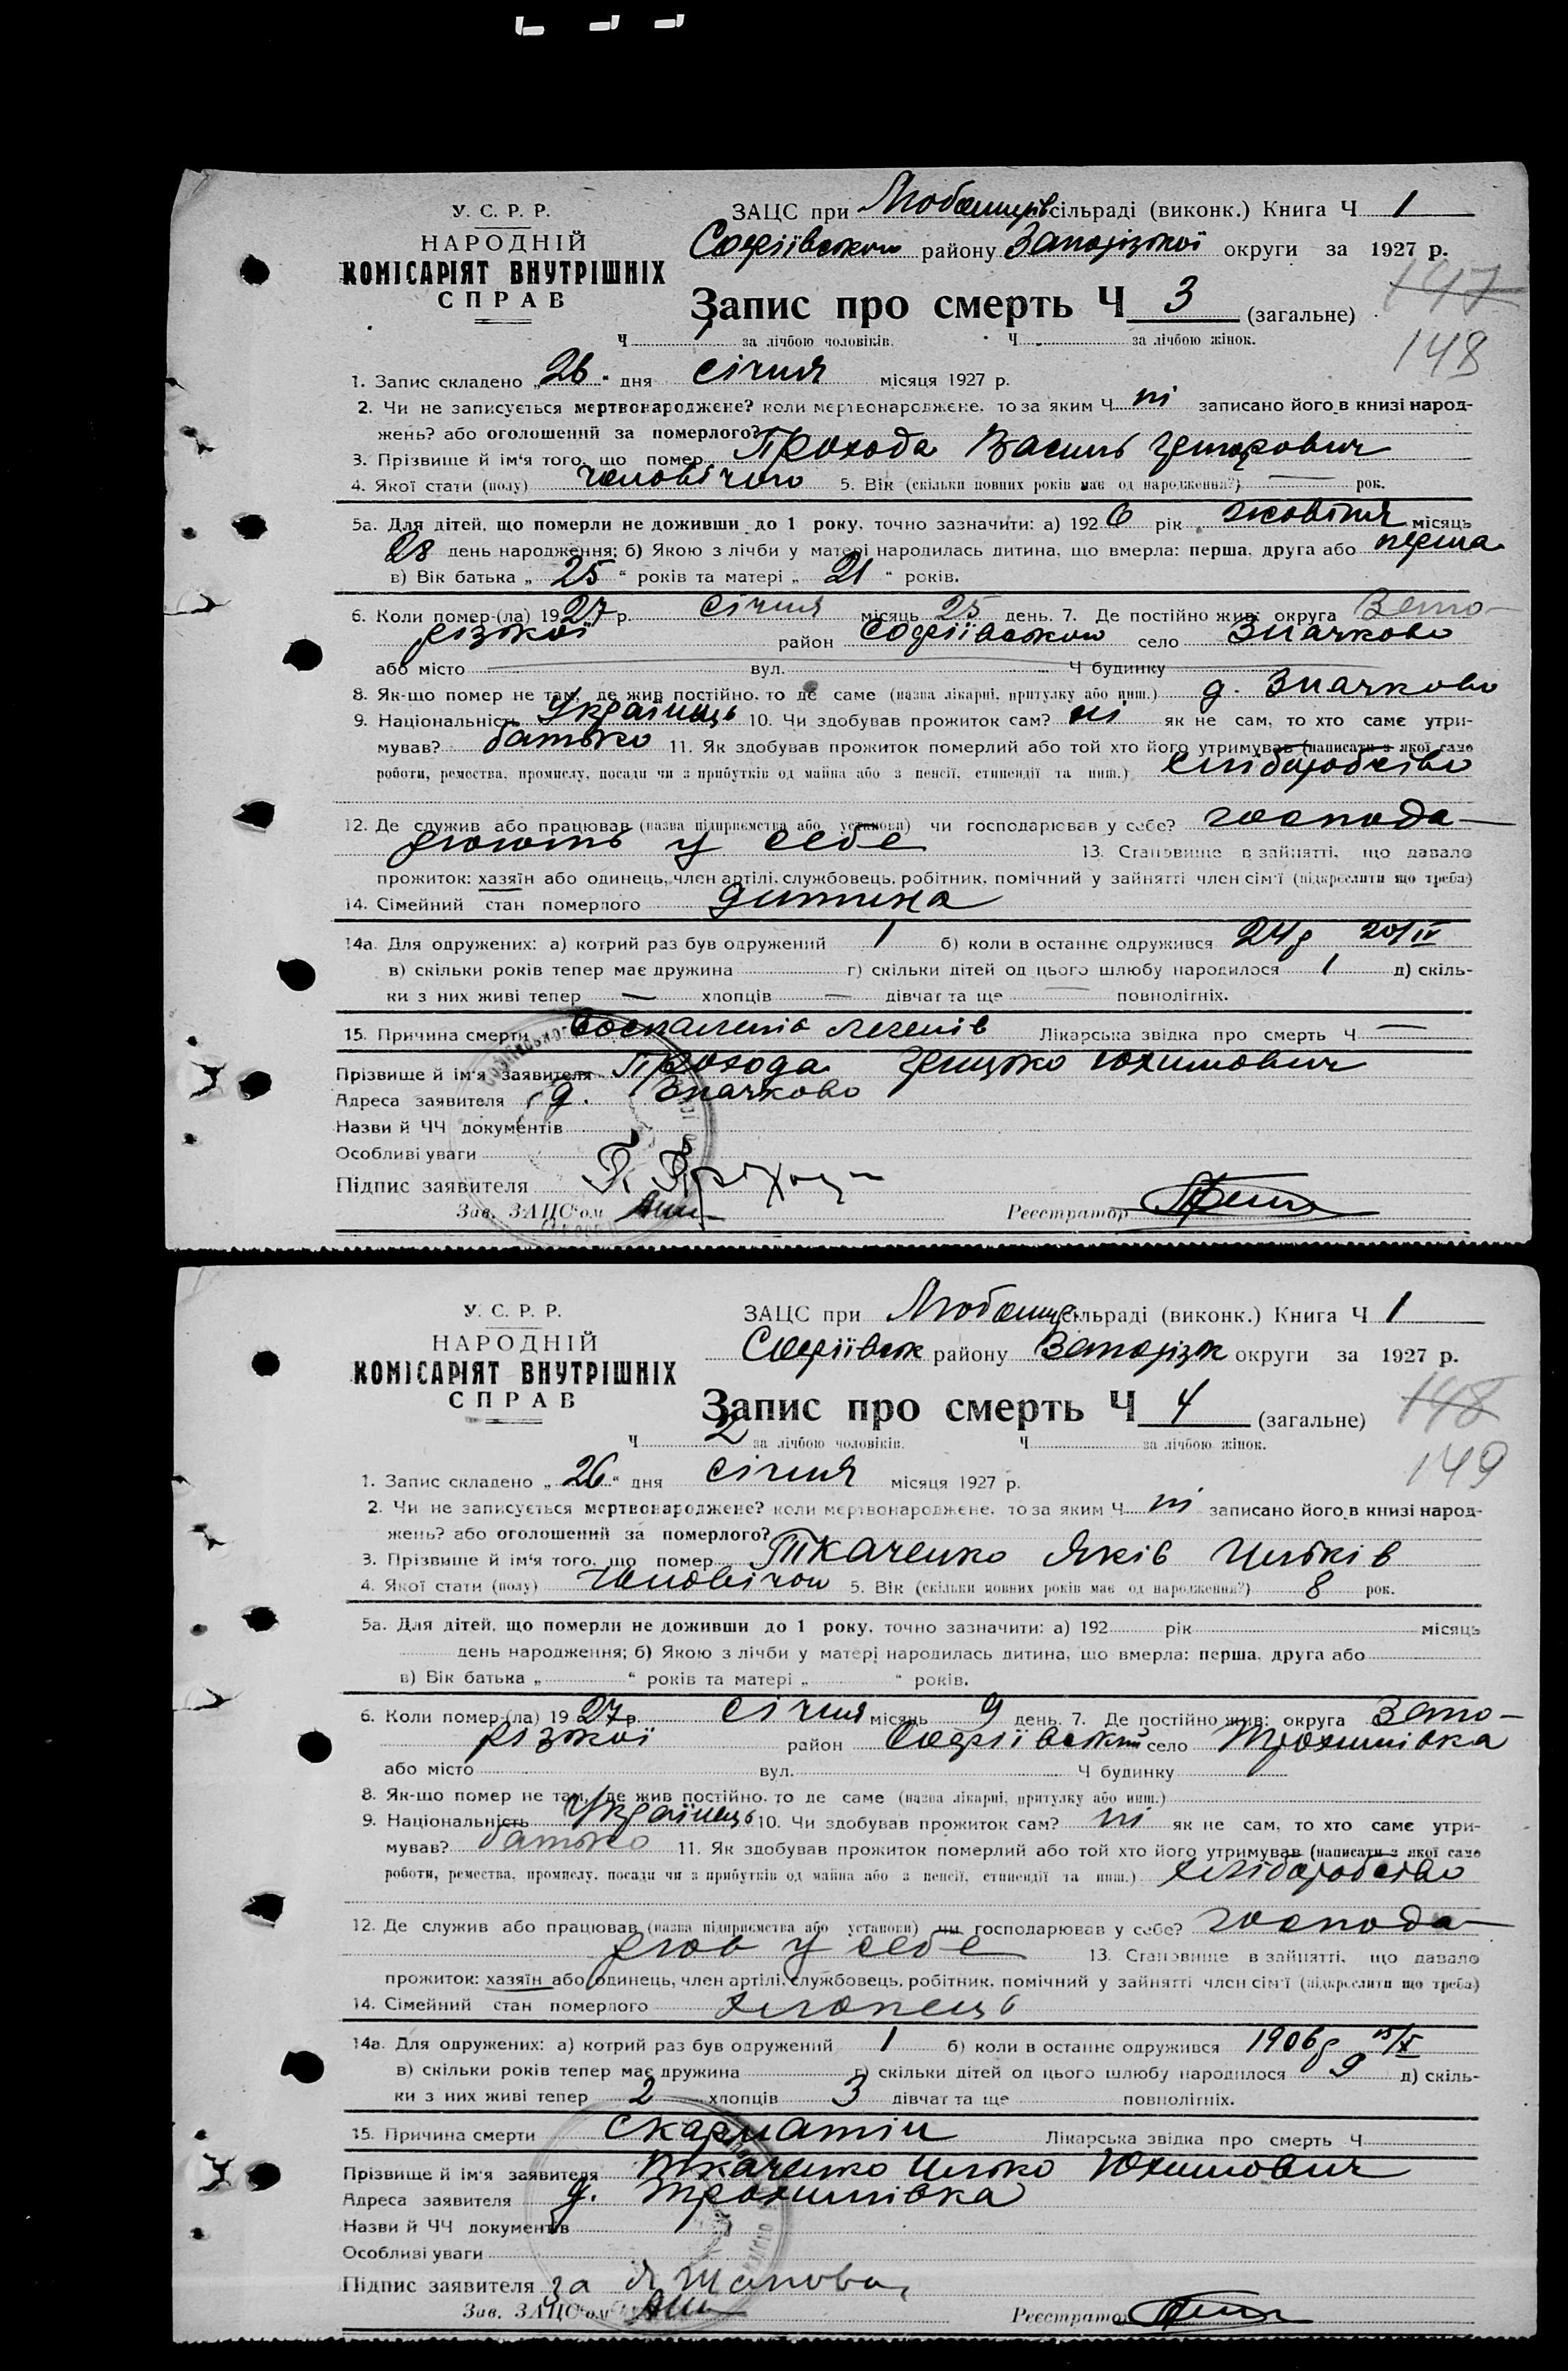 У. С. Р. Р.
НАРОДНІЙ
КОМІСАРІЯТ ВНУТРІШНІХ
СПРАВ
ЗАЦС при Любимів сільраді (виконк.) Книга Ч 1
Софіївського району Запорізької округи за 1927 р.
147
Запис про смерть Ч 3 (загальне)
148
Ч 1 за лічбою чоловіків. Ч за лічбою жінок.
1. Запис складено „26“ дня січня місяця 1927 р.
2. Чи не записується мертвонароджене? коли мертвонароджене, то за яким Ч ні записано його в книзі народ-
жень? або оголошений за померлого?
3. Прізвище й ім'я того, що помер Прохода Василь Григорович
4. Якої стати (полу) чоловічого 5. Вік (скільки повних років має од народження?) — рок.
5а. Для дітей, що померли не доживши до 1 року, точно зазначити: а) 1926 рік жовтня місяць
28 день народження; б) Якою з лічби у матері народилась дитина, що вмерла: перша, друга або перша
в) Вік батька „25“ років та матері „21“ років.
6. Коли помер-(ла) 1927 р. січня місяць 25 день. 7. Де постійно жив: округа Запо-
різької район Софіївського село Значково
або місто вул. Ч будинку
8. Як-що помер не там, де жив постійно, то де саме (назва лікарні, притулку або инш.) д. Значково
9. Національність Українець 10. Чи здобував прожиток сам? ні як не сам, то хто саме утри-
мував? батько 11. Як здобував прожиток померлий або той хто його утримував (написати з якої саме
роботи, ремества, промислу, посади чи з прибутків од майна або з пенсії, стипендії та инш.) хліборобство
12. Де служив або працював (назва підприємства або установи) чи господарював у себе? господа-
рюють у себе 13. Становище в зайнятті, що давало
прожиток: хазяїн або одинець, член артілі, службовець, робітник, помічний у зайнятті член сім'ї (підкреслити що треба)
14. Сімейний стан померлого дитина
14а. Для одружених: а) котрий раз був одружений 1 б) коли в останнє одружився 24р 20/IV
в) скільки років тепер має дружина г) скільки дітей од цього шлюбу народилося 1 д) скіль-
ки з них живі тепер — хлопців — дівчат та ще — повнолітніх.
15. Причина смерти воспаленія легенів Лікарська звідка про смерть Ч —
Прізвище й ім'я заявителя Прохода Грицько Юхимович
Адреса заявителя д. Значково
Назви й ЧЧ документів
Особливі уваги
Підпис заявителя Г. Прохода
Зав. ЗАЦС'ом Реєстратор
У. С. Р. Р.
НАРОДНІЙ
КОМІСАРІЯТ ВНУТРІШНІХ
СПРАВ
ЗАЦС при сільраді (виконк.) Книга Ч 1
Софіївськ району Запорізк округи за 1927 р.
148
Запис про смерть Ч 4 (загальне)
149
Ч 2 за лічбою чоловіків. Ч за лічбою жінок.
1. Запис складено „26“ дня січня місяця 1927 р.
2. Чи не записується мертвонароджене? коли мертвонароджене, то за яким Ч ні записано його в книзі народ-
жень? або оголошений за померлого?
3. Прізвище й ім'я того, що помер Ткаченко Яків Ільків
4. Якої стати (полу) чоловічого 5. Вік (скільки повних років має од народження?) 8 рок.
5а. Для дітей, що померли не доживши до 1 року, точно зазначити: а) 192 рік місяць
день народження; б) Якою з лічби у матері народилась дитина, що вмерла: перша, друга або
в) Вік батька „ “ років та матері „ “ років.
6. Коли помер-(ла) 1927 р. січня місяць 9 день. 7. Де постійно жив: округа Запо-
різької район Софіївський село Трохимівка
або місто вул. Ч будинку
8. Як-що помер не там, де жив постійно, то де саме (назва лікарні, притулку або инш.)
9. Національність Українець 10. Чи здобував прожиток сам? ні як не сам, то хто саме утри-
мував? батько 11. Як здобував прожиток померлий або той хто його утримував (написати з якої саме
роботи, ремества, промислу, посади чи з прибутків од майна або з пенсії, стипендії та инш.) хліборобство
12. Де служив або працював (назва підприємства або установи) чи господарював у себе? господа-
рює у себе 13. Становище в зайнятті, що давало
прожиток: хазяїн або одинець, член артілі, службовець, робітник, помічний у зайнятті член сім'ї (підкреслити що треба)
14. Сімейний стан померлого хлопець
14а. Для одружених: а) котрий раз був одружений 1 б) коли в останнє одружився 1906р 15/X
в) скільки років тепер має дружина г) скільки дітей од цього шлюбу народилося 9 д) скіль-
ки з них живі тепер 2 хлопців 3 дівчат та ще повнолітніх.
15. Причина смерти скарлатін Лікарська звідка про смерть Ч
Прізвище й ім'я заявителя Ткаченко Ілько Юхимович
Адреса заявителя д. Трохимівка
Назви й ЧЧ документів
Особливі уваги
Підпис заявителя за
Зав. ЗАЦС'ом Реєстратор